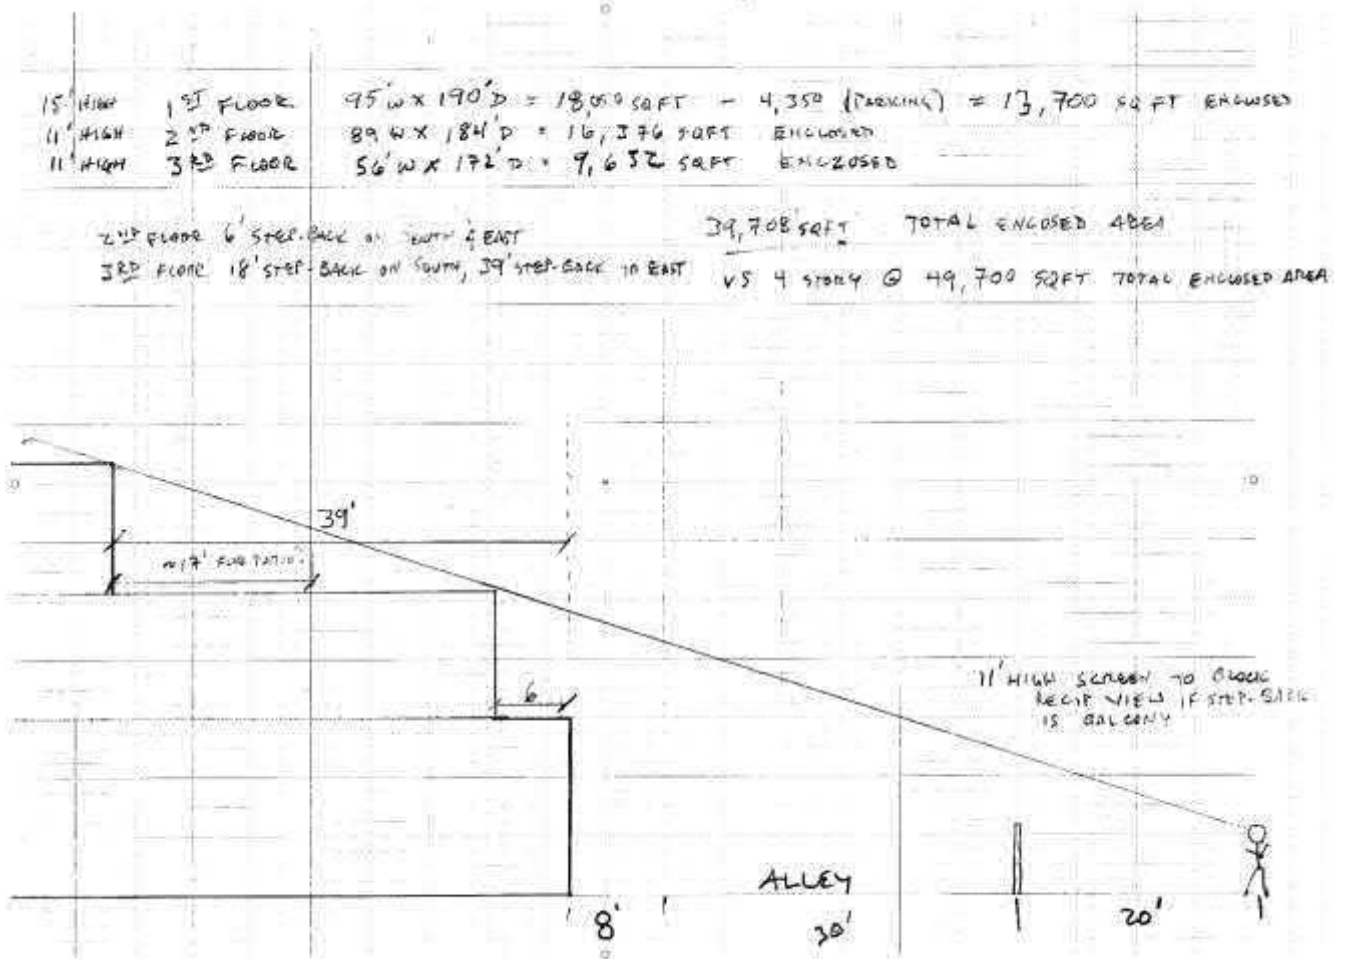 15' HIGH 1ST FLOOR 95'W X 190'D = 18,050 SQFT - 4,350 (PARKING) = 13,700 SQ FT ENCLOSED
11' HIGH 2ND FLOOR 89 W X 184'D = 16,376 SQFT ENCLOSED
11' HIGH 3RD FLOOR 56'W X 172'D = 9,632 SQFT ENCLOSED
2ND FLOOR 6' STEP-BACK ON SOUTH & EAST
39,708 SQFT TOTAL ENCLOSED AREA
3RD FLOOR 18' STEP-BACK ON SOUTH, 39' STEP-BACK TO EAST
VS 4 STORY @ 49,700 SQFT TOTAL ENCLOSED AREA
39'
~17' FOR PATIO
6
11' HIGH SCREEN TO BLOCK
RECIP VIEW IF STEP-BACK
IS BALCONY
ALLEY
8'
30'
20'